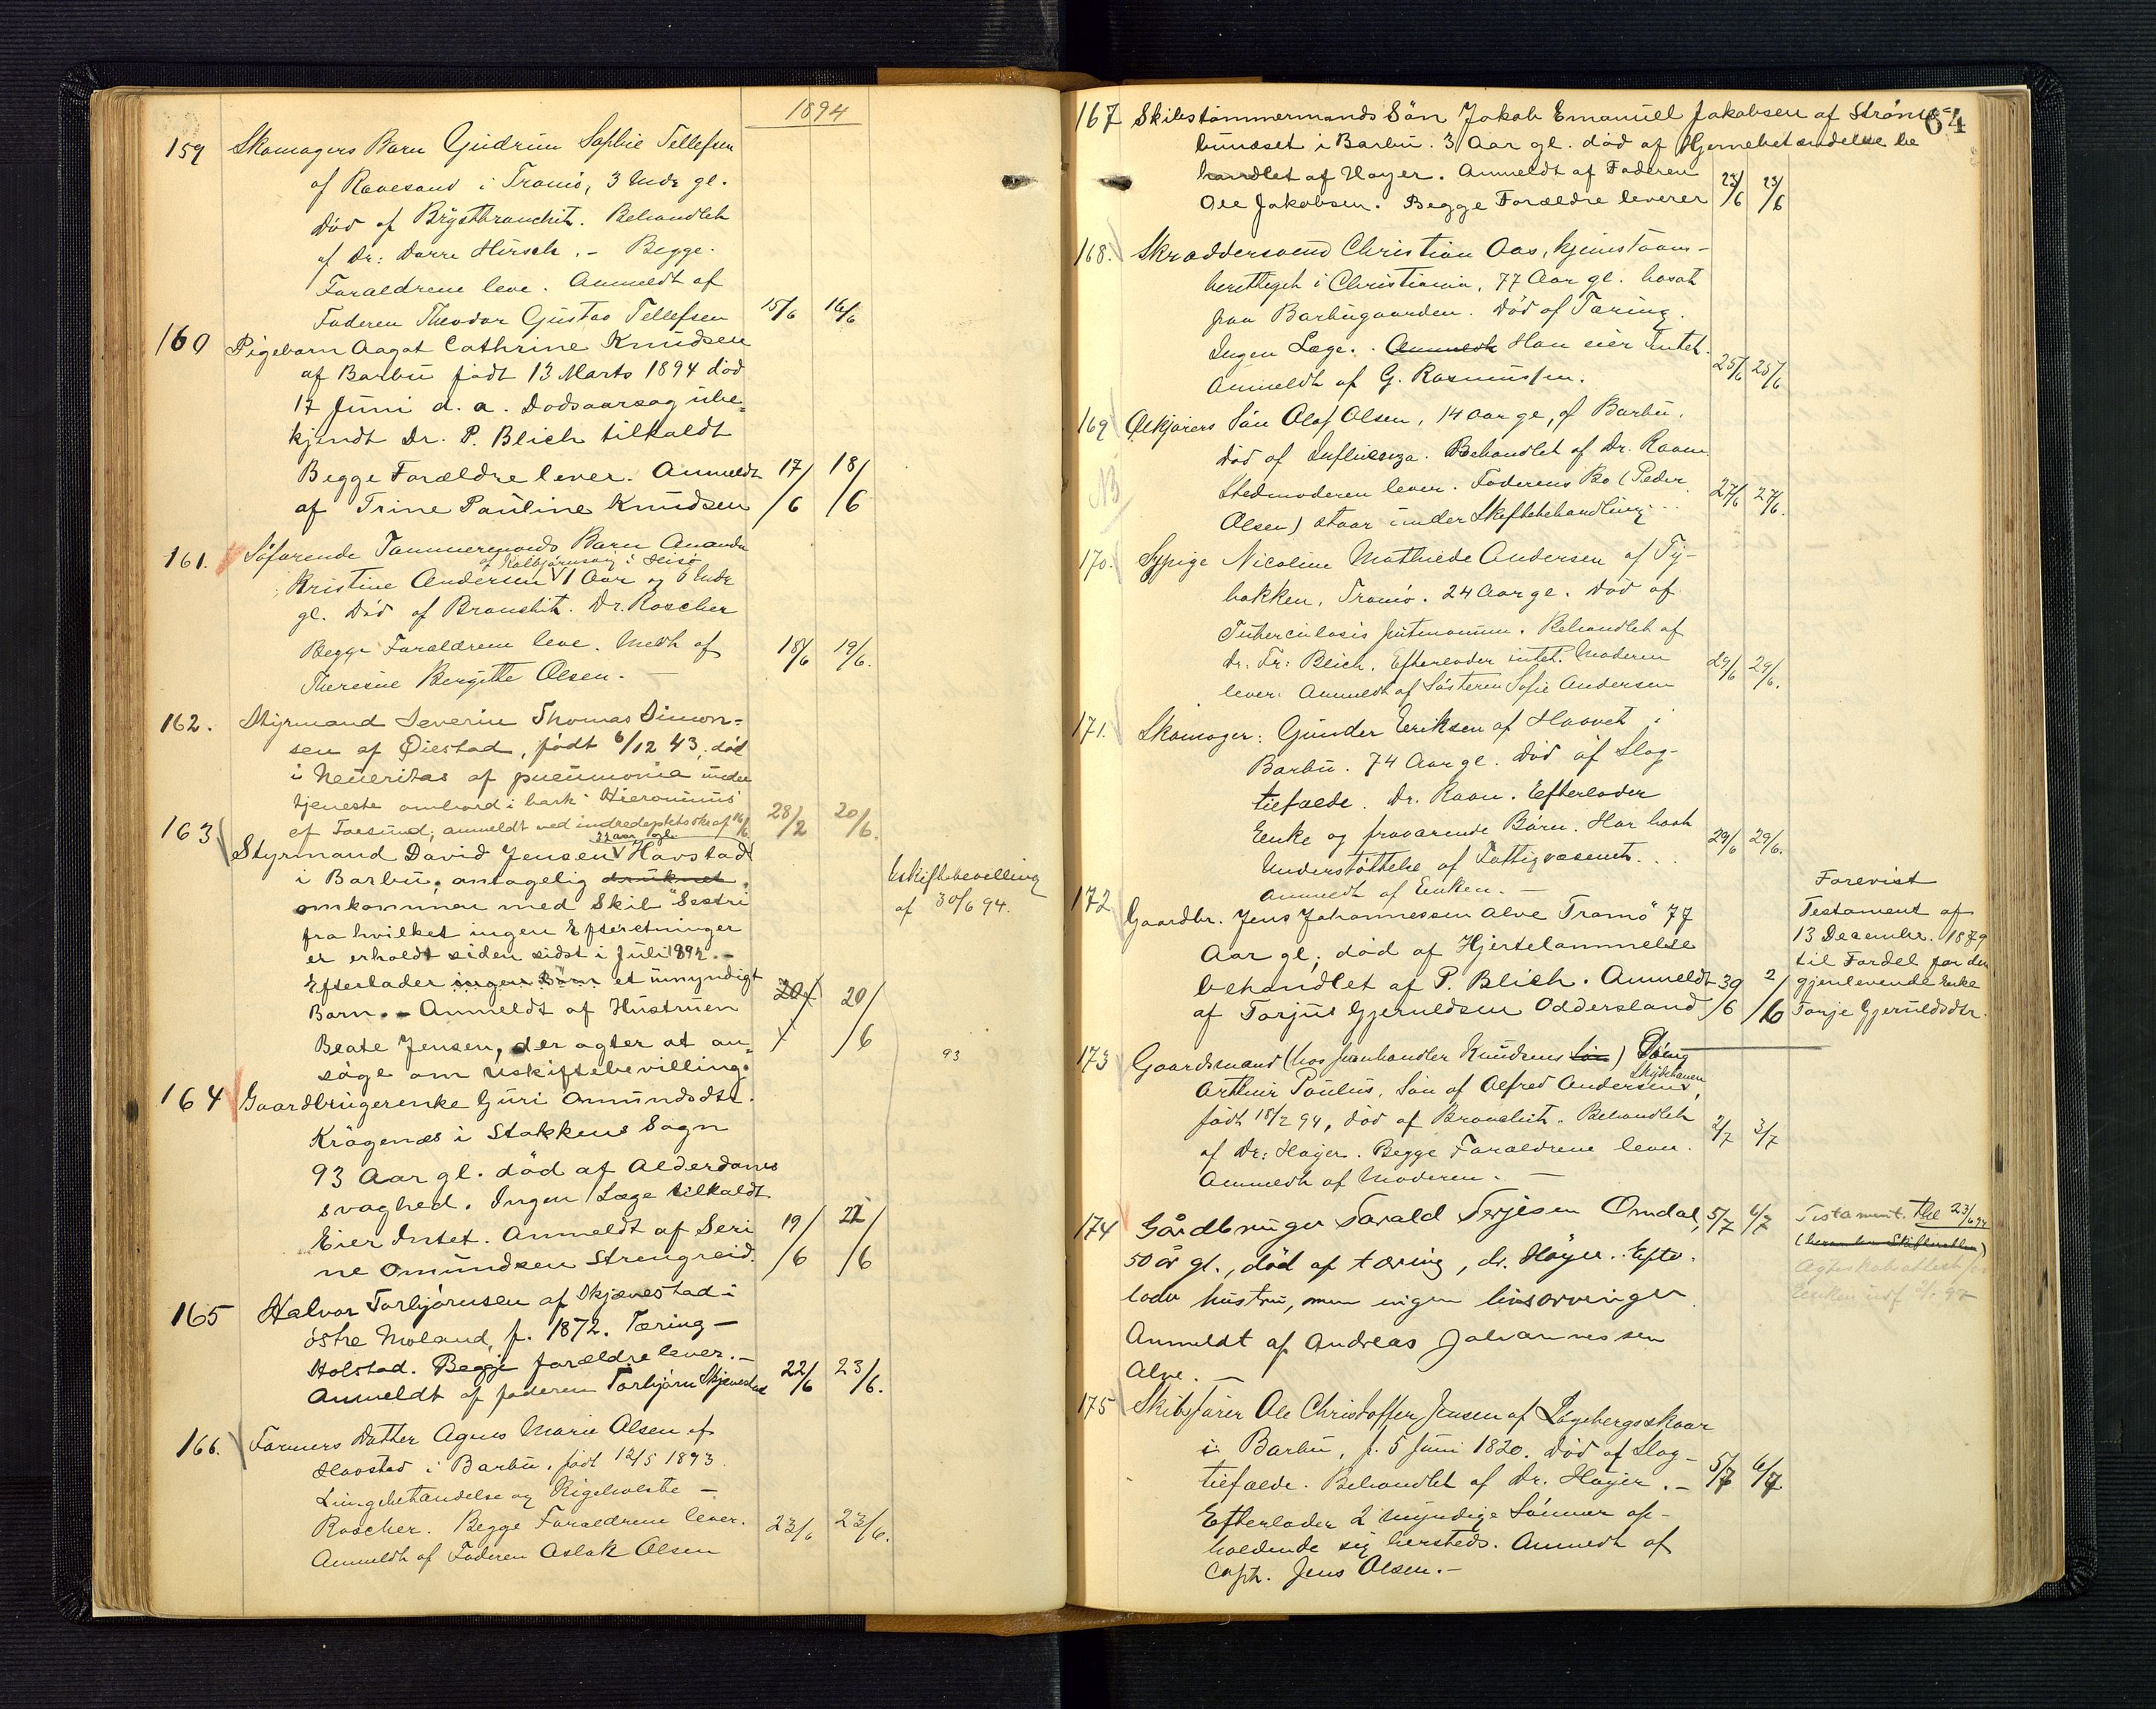 1894
159 Skomagers Barn Gudrun Sophie Tellefsen
af Ravesand i Tromø, 3 Mdr gl.
Død af Brystbronchit. Behandlet
af Dr: Dorre Hirsch. - Begge
Forældrene leve. Anmeldt af
Faderen Theodor Gustav Tellefsen 15/6 16/6
160 Pigebarn Aagot Cathrine Knudsen
af Barbu født 13 Marts 1894 død
17 Juni d. a. Dødsaarsag ube-
kjendt Dr. P. Blich tilkaldt
Begge Forældre lever. Anmeldt 17/6 18/6
af Trine Pauline Knudsen
161. Søfarende Tømmermands Barn Amanda
af Kolbjørnsvig i Hisø
Kristine Andersen 1 Aar og 6 Mdr
gl. Død af Bronchit. Dr. Roscher
Begge Forældrene leve. Meldt af 18/6 19/6.
Theresie Bergitte Olsen. -
162. Styrmand Severin Thomas Simon-
sen af Øiestad, født 6/12 43, død
i Neueritas af pneumonia under
tjeneste ombord i bark "Hieronimus"
af Farsund; anmeldt ved indredeptsskr af 16/6 28/2 20/6.
32 aar gl.
163 Styrmand David Jensen Havstad
i Barbu, antagelig druknet.
omkommen med Skib "Sestri"
fra hvilket ingen Efterretninger
er erholdt siden sidst i Juli 1892. -
Efterlader ingen Børn et umyndigt
Barn. - Anmeldt af Hustruen 20/ 20/6
Beate Jensen, der agter at an-
søge om uskiftebevilling.
Uskiftebevilling
af 30/6 94.
93
164 Gaardbrugerenke Guri Omundsdtr.
Krågenæs i Stokkens Sogn
93 Aar gl. død af Alderdoms
svaghed. Ingen Læge tilkaldt
Eier Intet. Anmeldt af Seri 19/6 21/6
ne Omundsen Strengreid.
165 Halvor Torbjørnsen af Skjævestad i
østre Moland, f. 1872. Tæring -
Holstad. Begge forældre lever. -
Anmeldt af faderen Torbjørn Skjævestad 22/6 23/6.
166. Farmers Datter Agnes Marie Olsen af
Havstad i Barbu, født 12/5 1893.
Lungebetændelse og Kighoste -
Roscher. Begge Forældrene lever.
Anmeldt af Faderen Aslak Olsen 23/6 23/6.
64
167 Skibstømmermands Søn Jakob Emanuel Jakobsen af Strøms-
bunæset i Barbu. 3 Aar gl. død af Hjernebetændelse be
handlet af Høyer. Anmeldt af Faderen
Ole Jakobsen. Begge Forældre leverer 23/6 23/6
168. Skræddersvend Christian Aas, hjemstavns-
berettiget i Christiania, 77 Aar gl. bosat
paa Barbugaarden. Død af Tæring.
Ingen Læge. Anmeldt Han eier Intet.
Anmeldt af G. Rasmussen. 25/6 25/6
169 Ølkjørers Søn Olaf Olsen, 14 aar gl, af Barbu.
Død af Influenza. Behandlet af Dr. Raan.
NB
Stedmoderen lever. Faderens Bo (Peder
Olsen) staar under Skiftebehandling... 27/6 27/6.
170. Sypige Nicoline Mathilde Andersen af Ty-
bakken, Tromø. 24 Aar gl. Død af
Tuberculosis pulmonum. Behandlet af
Dr. Fr: Blich. Efterlader intet. Moderen 29/6 29/6.
lever. Anmeldt af Søsteren Sofie Andersen
171. Skomager: Gunder Eriksen af Haavet i
Barbu. 74 Aar gl. død af Slag-
tilfælde. Dr. Raan. Efterlader
Enke og fraværende Børn. Har havt
Understøttelse af Fattigvæsenet... 29/6 29/6.
Anmeldt af Enken. -
172 Gaardbr. Jens Johannessen Alve Tromø 77
Aar gl, død af Hjertelammelse
behandlet af P. Blich. Anmeldt 30/6 2/6
af Torjus Gjeruldsen Oddersland
Forevist
Testament af
13 December 1879
til Fordel for den
gjenlevende Enke
Tonje Gjeruldsdtr.
173 Gaardsmand (hos Jernhandler Knudsens Søn) Dreng
Skytehauen,
Arthur Paulus, Søn af Alfred Andersens,
født 18/2 94, død af Bronchit. Behandlet
af Dr: Høyer. Begge Forældrene lever. 2/7 3/7
Anmeldt af Moderen. -
174 Gårdbruger Tarald Terjesen Omdal, 5/7 6/7
50 år gl., død af tæring, dr. Høyer. Efter-
lader hustru, men ingen livsarvinger
Anmeldt af Andreas Johannessen
Alve. -
Testament. Thl 23/6 94
Agteskabsattest for
175 Skibsfører Ole Christoffer Jensen af Løgebergsskaar
i Barbu, f. 5 Juni 1820. Død af Slag-
tilfælde. Behandlet af Dr. Høyer. - 5/7 6/7
Efterlader 2 myndige Sønner op-
holdende sig hersteds. Anmeldt af
Capt. Jens Olsen. -